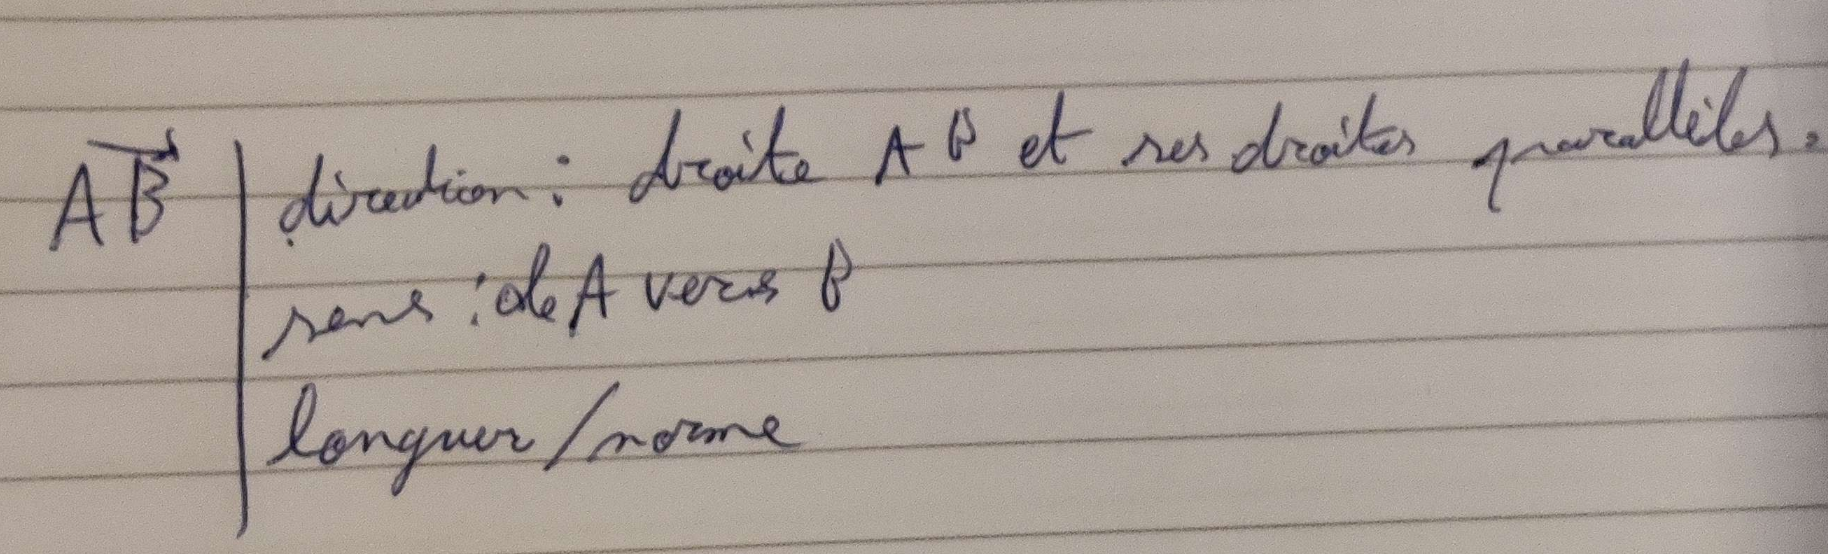 AB→ | direction : droite AB et ses droites parallèles.
sens : de A vers B
longuer / norme